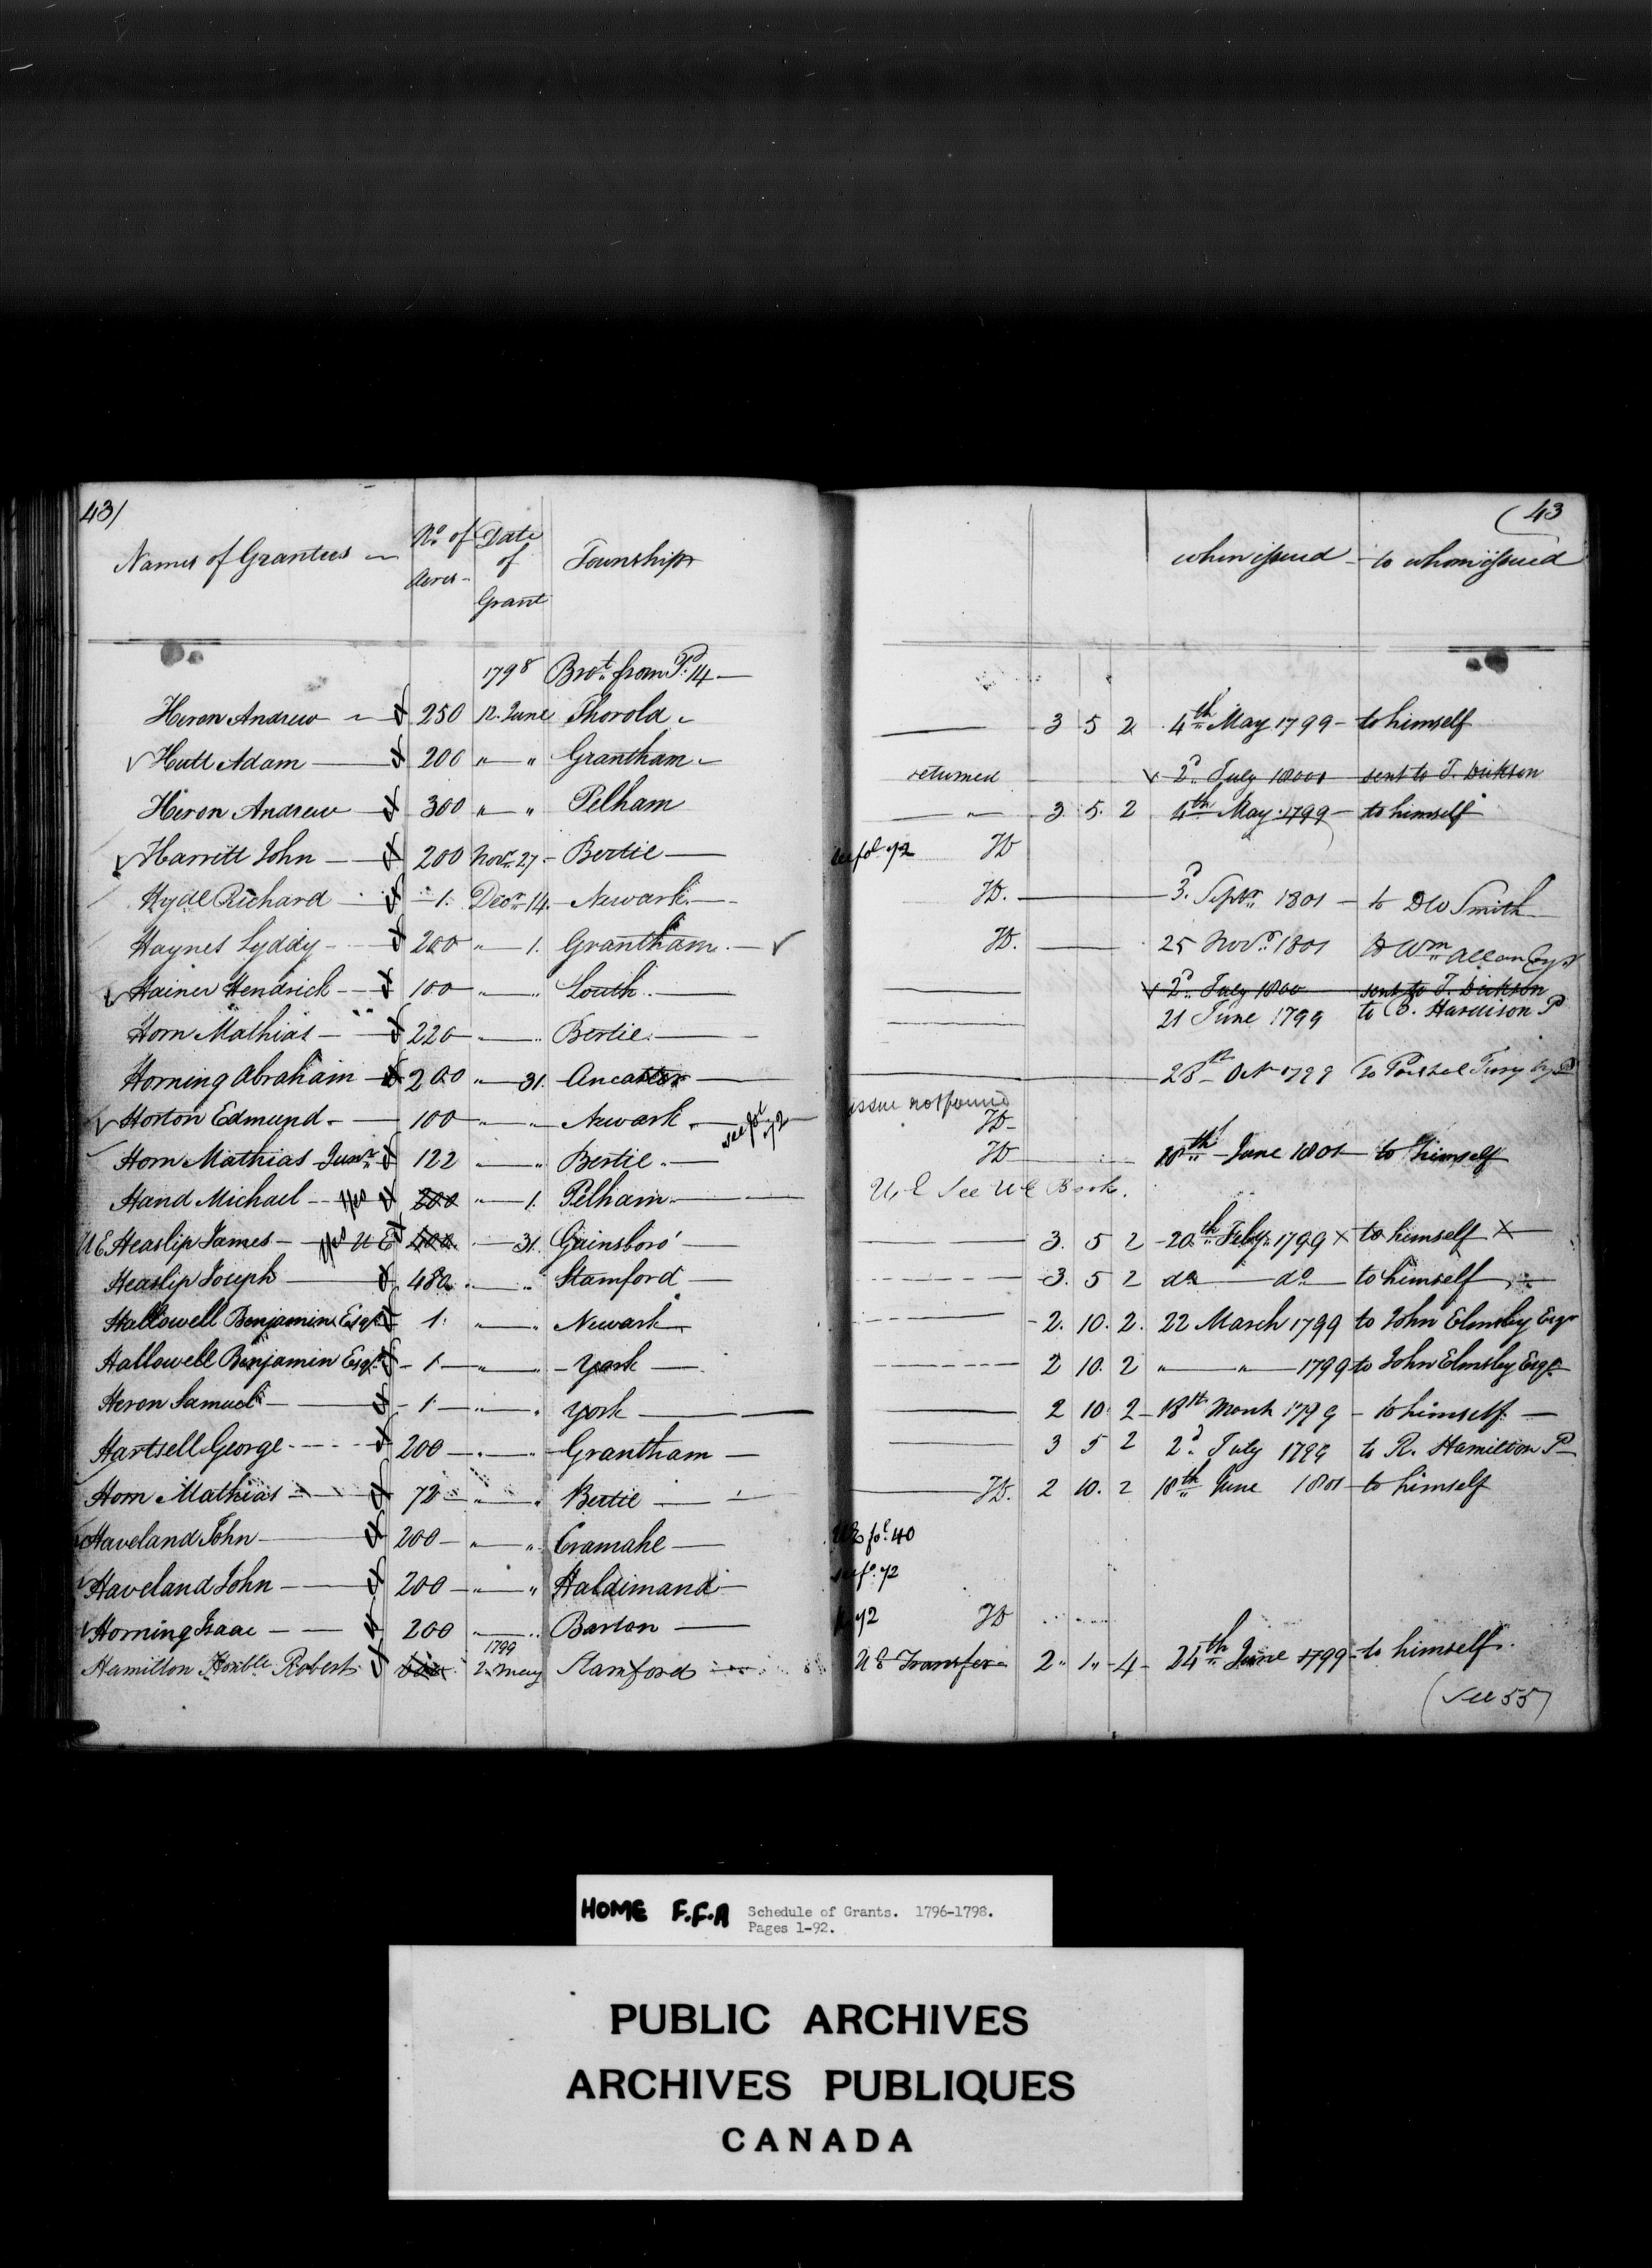 43/
(43
Names of Grantees
No. of Acres
Date of Grant
Townships
when issued
to whom issued
1798 Brot. from P. 14
Heron Andrew 250 12. June Thorold 3 5 2 4th May 1799 - to himself
Hutt Adam 200 " " Grantham returned 2d. July 1800 sent to T. Dickson
Heron Andrew 300 " " Pelham " 3. 5. 2 4th May 1799 - to himself
Harritt John 200 Novr. 27 - Bertie see fol 72
Hyde Richard 1. Decr. 14 - Newark 3d. Septr. 1801 - to DW Smith
Haynes Lyddy 200 " 1. Grantham 25 Novr. 1801 to Wm Allan Esqr
Hainer Hendrick 100 " " Louth 2d. July 1800 sent to T. Dickson
Horn Mathias 220 " Bertie 21 June 1799 to B. Hardison P
Horning Abraham 200 " 31. Ancaster 28th Octr 1799
Horton Edmund 100 " " Newark see fol 72 issue not found
Horn Mathias Junr. 122 " " Bertie 18th June 1801 to himself
Hand Michael 200 " 1. Pelham U.E See UE Book.
UE Heaslip James UE 400 31. Gainsboro' 3. 5 2 20th Feby. 1799 x to himself x
Heaslip Joseph 480 " Stamford 3. 5 2 do do to himself
Hallowell Benjamin Esqr 1. " " Newark 2. 10. 2. 22 March 1799 to John Elmsley Esqr
Hallowell Benjamin Esqr. 1. " " York 2 10. 2 " " 1799 to John Elmsley Esqr
Heron Samuel 1. " " York 2 10. 2 18th March 1799 - to himself
Hartsell George 200 " Grantham 3 5 2 2d. July 1799 to R. Hamilton P
Horn Mathias 72 " " Bertie 2 10. 2 18th June 1801 - to himself
Haveland John 200 " " Cramahe UE fol. 40
Haveland John 200 " " Haldimand see fo. 72
Horning Isaac 200 " Barton 72
Hamilton Honble Robert 1799 2. May Stamford UE Transfer 2 " 1 " 4 24th June 1799 - to himself.
(see 55)
HOME F.F.A Schedule of Grants. 1796-1798.
Pages 1-92.
PUBLIC ARCHIVES
ARCHIVES PUBLIQUES
CANADA